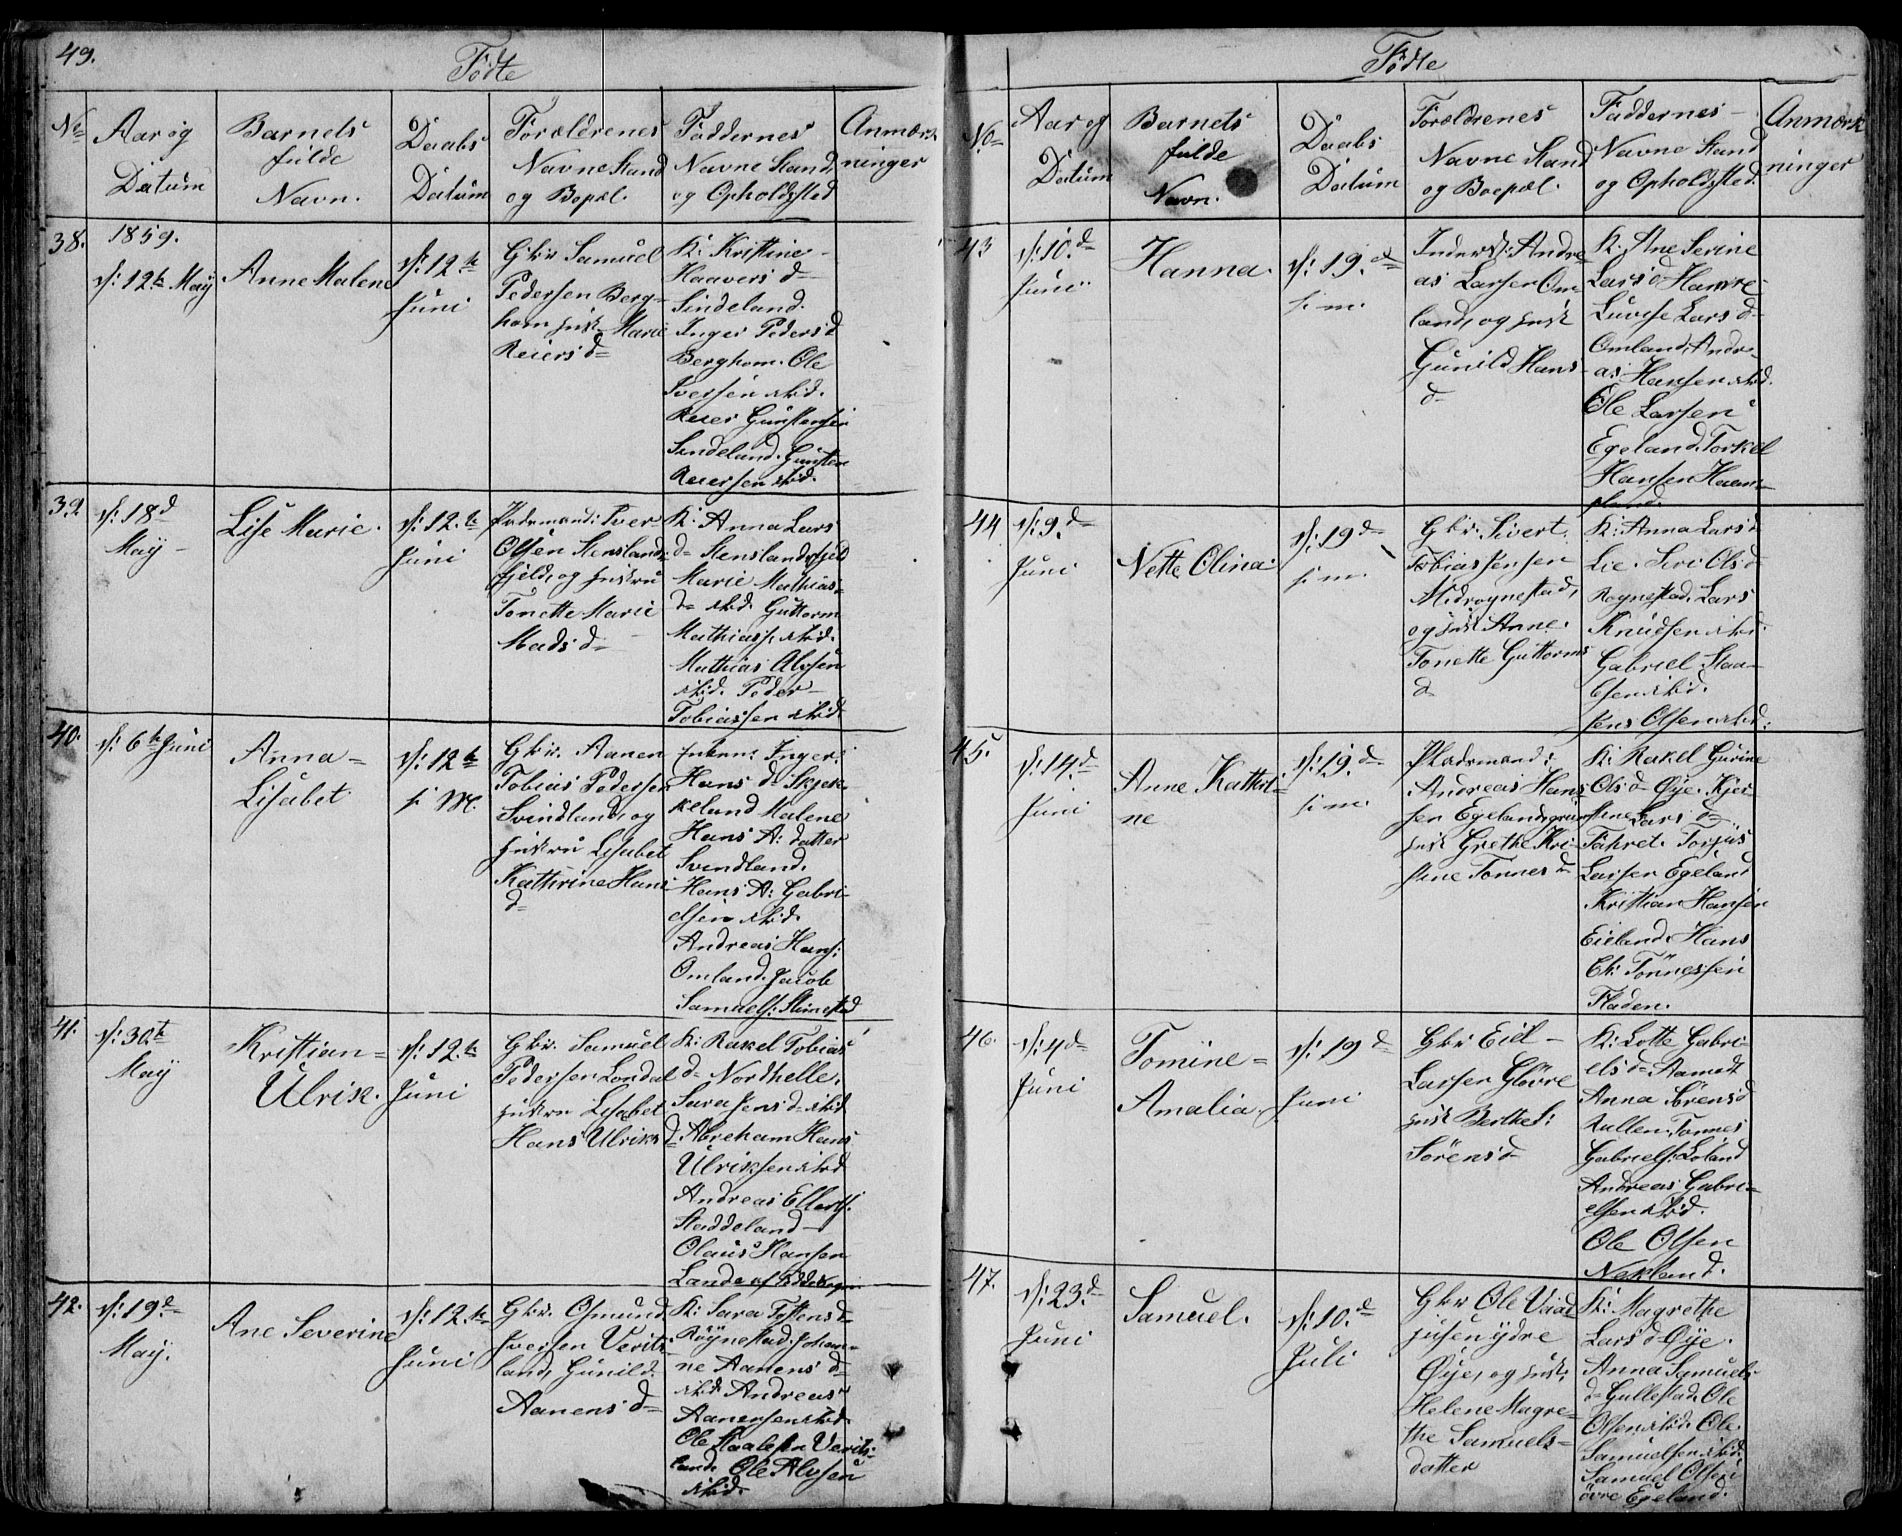 49.
Födte
No
Aar og
Datum
Barnets
fulde
Navn.
Daabs
Datum
Forældrenes
Navne Stand
og Bopæl.
Faddernes
Navne Stand,
og Opholdsted
Anmærk
ninger
38.
1859.
d: 12te May
Anne Malene
d: 12te
Juni
Gkr. Samuel
Pedersen Berg-
hom hust. Marie
Reiers d
K: Kristine
Haavers d
Sindeland.
Inger Peders d
Berghom. Ole
Iversen sted.
Reier Gunstensen
Sindeland. Gunsten
Reiersen sted.
39
d: 18d
May
Lise Marie.
d: 12.te
Juni
Pladsmand: Iver
Olsen Stensland-
fjeld, og hustru
Tonette Marie
Mads d
K: Anna Lars
d Stenslandsfjeld
Marie Mathias-
d sted. Guttorm
Mathiass. sted.
Mathias Alysen
sted. Peder
Tobiassen sted
40.
d: 6te Juni
Anna-
Lisabet
d: 12te
s M.
Gkr. Aanen
Tobias Pedersen
Svindland, og
hustru Lisabet
Kathrine Hans
d
Inger
Hans d Skjek-
keland Malene
Hans A: datter
Svindland.
Hans A: Gabri-
elsen sted.
Andreas Hans:
Omland. Jacob
Samuels:
41.
d: 30te
May
Kristian-
Ulrik.
d: 12.te
Juni
Gkr. Samuel
Pedersen Londal
hustru Lisabet
Hans Ulriks d
K: Rakel Tobias
d Nordhelle.
Sara Jens d sted
Abreham Hans
Ulriksen sted
Andreas Ellefs.
Staddeland
Olaus Hansen
Lande af
42.
d: 19.d
May.
Ane Severine
d: 12.te
Juni
Gkr. Osmund
Iversen Verits-
land, Gunild
Aanens d
K: Sara Tostens d
Röynestad. Johan-
ne Aanens d
sted Andreas
Aanensen sted.
Ole Staalesen Verits-
land. Ole Alysen
sted.
Födte
No
Aar og
Datum
Barnets
fulde
Navn.
Daabs
Datum
Forældrenes
Navne Stand
og Boepæl.
Faddernes
Navne Stand
og Opholdsted.
Anmærk
ninger
43
d: 10.d
Juni
Hanna.
d: 19.d
s: m.
Inderst: Andre-
as Larsen Om-
land, og hust
Gunild Hans
d
K. Ane Serine
Lars d Hamre
Luvise Lars d
Omland, Andre-
as Hansen sted.
Ole Larsen
Egeland. Torkel
Hansen
44
d: 9.d
Juni
Nette Olina.
d: 19d
s: m.
Gkr. Sivert
Tobias Jensen
Midrognestad,
og hust Anne
Tonette Guttorms
d
K: Anna Lars d
Lie. Siri Ols d
Rognestad. Lars
Knudsen sted.
Gabriel Staa-
lesen sted.
Jens Olsen sted:
45.
d: 14.d
Juni
Anne Kathri-
ne
d: 19.d
s: m.
Pladsmand:
Andreas Han-
sen Egeland
hust Grethe Kri-
stine Tönnes d
K: Rakel Gurine
Ols d Øye. Kjer-
stine Lars d
Fahret. Torjus
Larsen Egeland
Kristian Hansen
Eieland. Hans
Ck: Tönnessen
Fladen.
46.
d: 4d
Juni
Tomine-
Amalia.
d: 19d
Juni
Gkr Eid
Larsen Glövre
hust Berthe S:
Sörens d
K: Lotte Gabri-
els d Aamodt
Anna Sörens d
Kullen, Tönnes
Gabriels: Loland
Andreas Gabri-
elsen sted.
Ole Olsen
Nekland.
47.
d: 23.d
Juni
Samuel.
d: 10.d
Juli
Gkr Ole Vaad
jusen ydre
Øye, og hust.
Helene Magre-
the Samuels-
datter
K: Magrethe
Lars d Øye.
Anna Samuels
d Gullestad. Ole
Olsen sted. Ole
Samuelsen sted.
Samuel Olsen
övre Egeland.